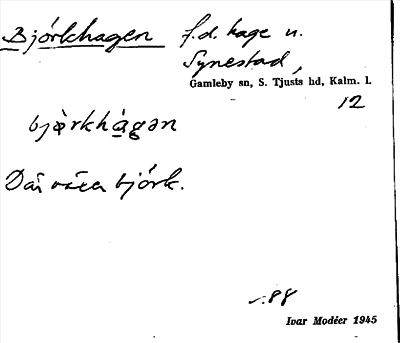 Björkhagen f.d. hage u.
Synestad,
Gamleby sn, S. Tjusts hd, Kalm. l.
12
bjœ̀rkhágən
Där växer björk.
88
Ivar Modéer 1945